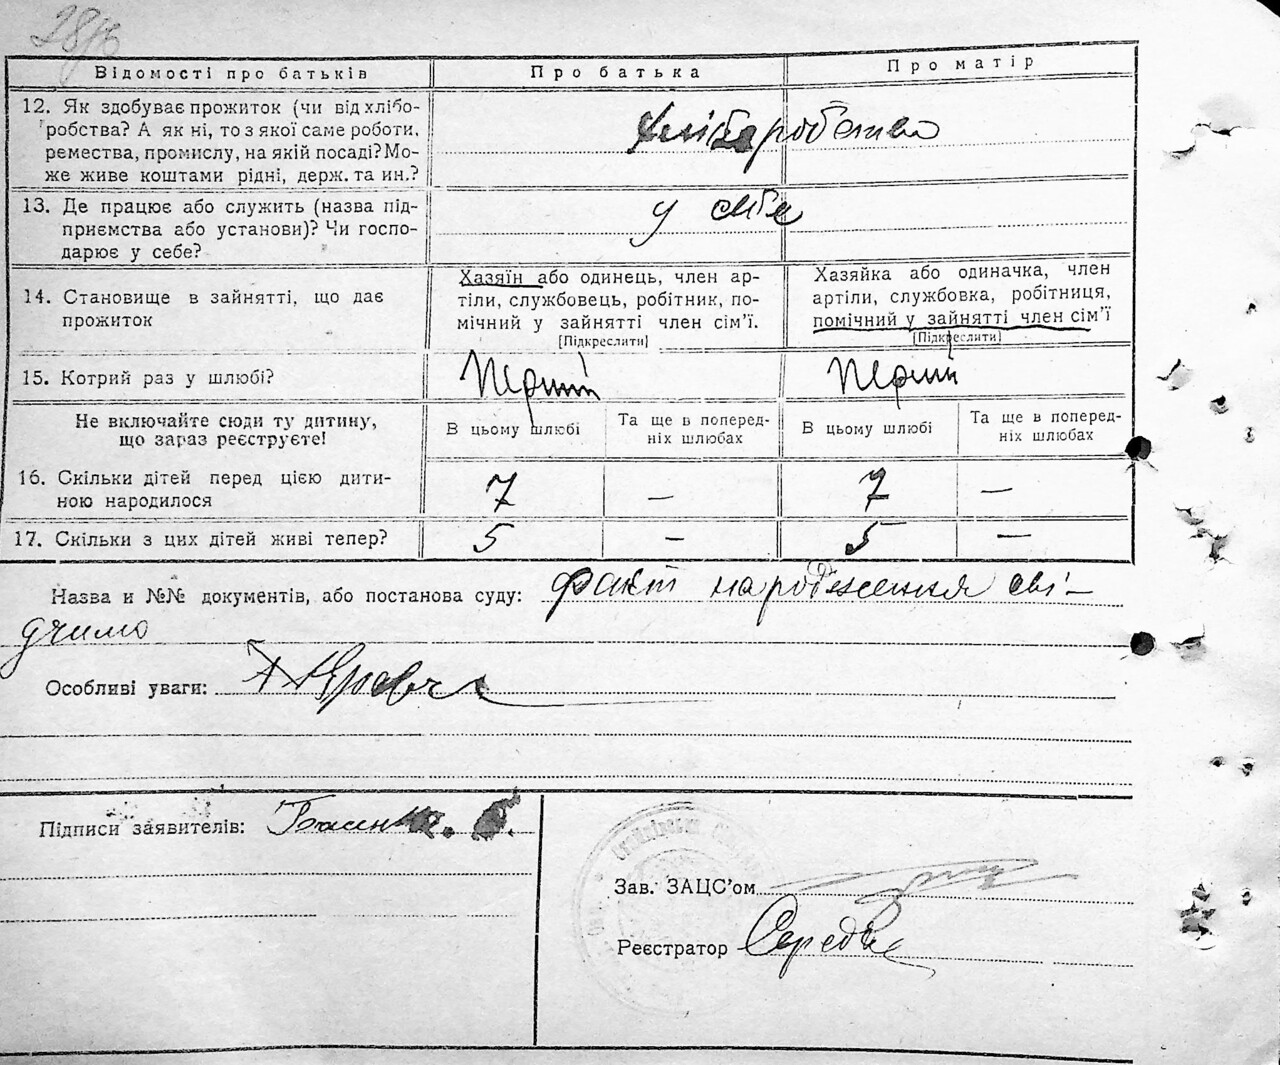 Відомості про батьків
Про батька
Про матір
12. Як здобуває прожиток (чи від хлібо-
робства? А як ні, то з якої саме роботи,
ремества, промислу, на якій посаді? Мо-
же живе коштами рідні, держ. та ин.?
хліборобство
13. Де працює або служить (назва під-
приємства або установи)? Чи госпо-
дарює у себе?
у себе
14. Становище в зайнятті, що дає
прожиток
Хазяїн або одинець, член ар-
тіли, службовець, робітник, по-
мічний у зайнятті член сім'ї.
[Підкреслити]
Хазяйка або одиначка, член
артіли, службовка, робітниця,
помічний у зайнятті член сім'ї
[Підкреслити]
15. Котрий раз у шлюбі?
перший
перший
Не включайте сюди ту дитину,
що зараз реєструєте!
В цьому шлюбі
Та ще в поперед-
ніх шлюбах
В цьому шлюбі
Та ще в поперед-
ніх шлюбах
16. Скільки дітей перед цією дити-
ною народилося
7 — 7 —
17. Скільки з цих дітей живі тепер?
5 — 5 —
Назва и №№ документів, або постанова суду: Факт народження сві-
дчимо
Особливі уваги:
Підписи заявителів:
Зав. ЗАЦС'ом
Реєстратор